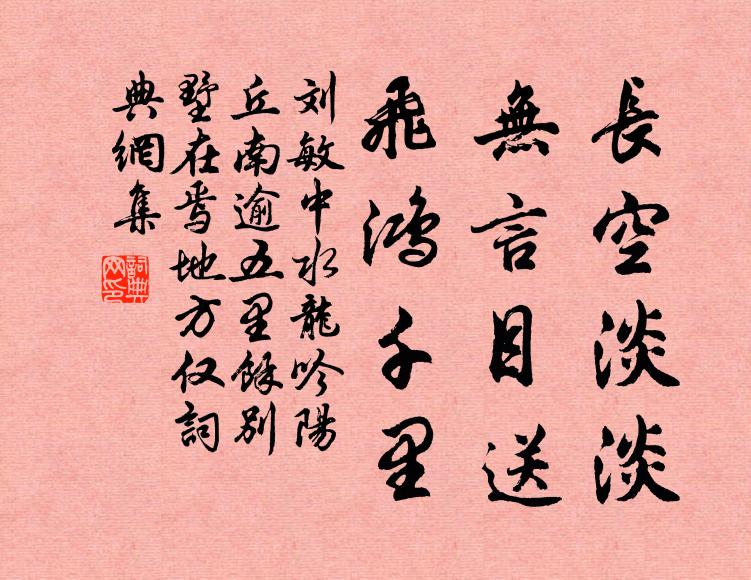 長空淡淡
無言目送
飛鴻千里
刘敏中水龍吟陽
丘南逾五里餘別
墅在焉地方仅詞
典網集
詞典網印